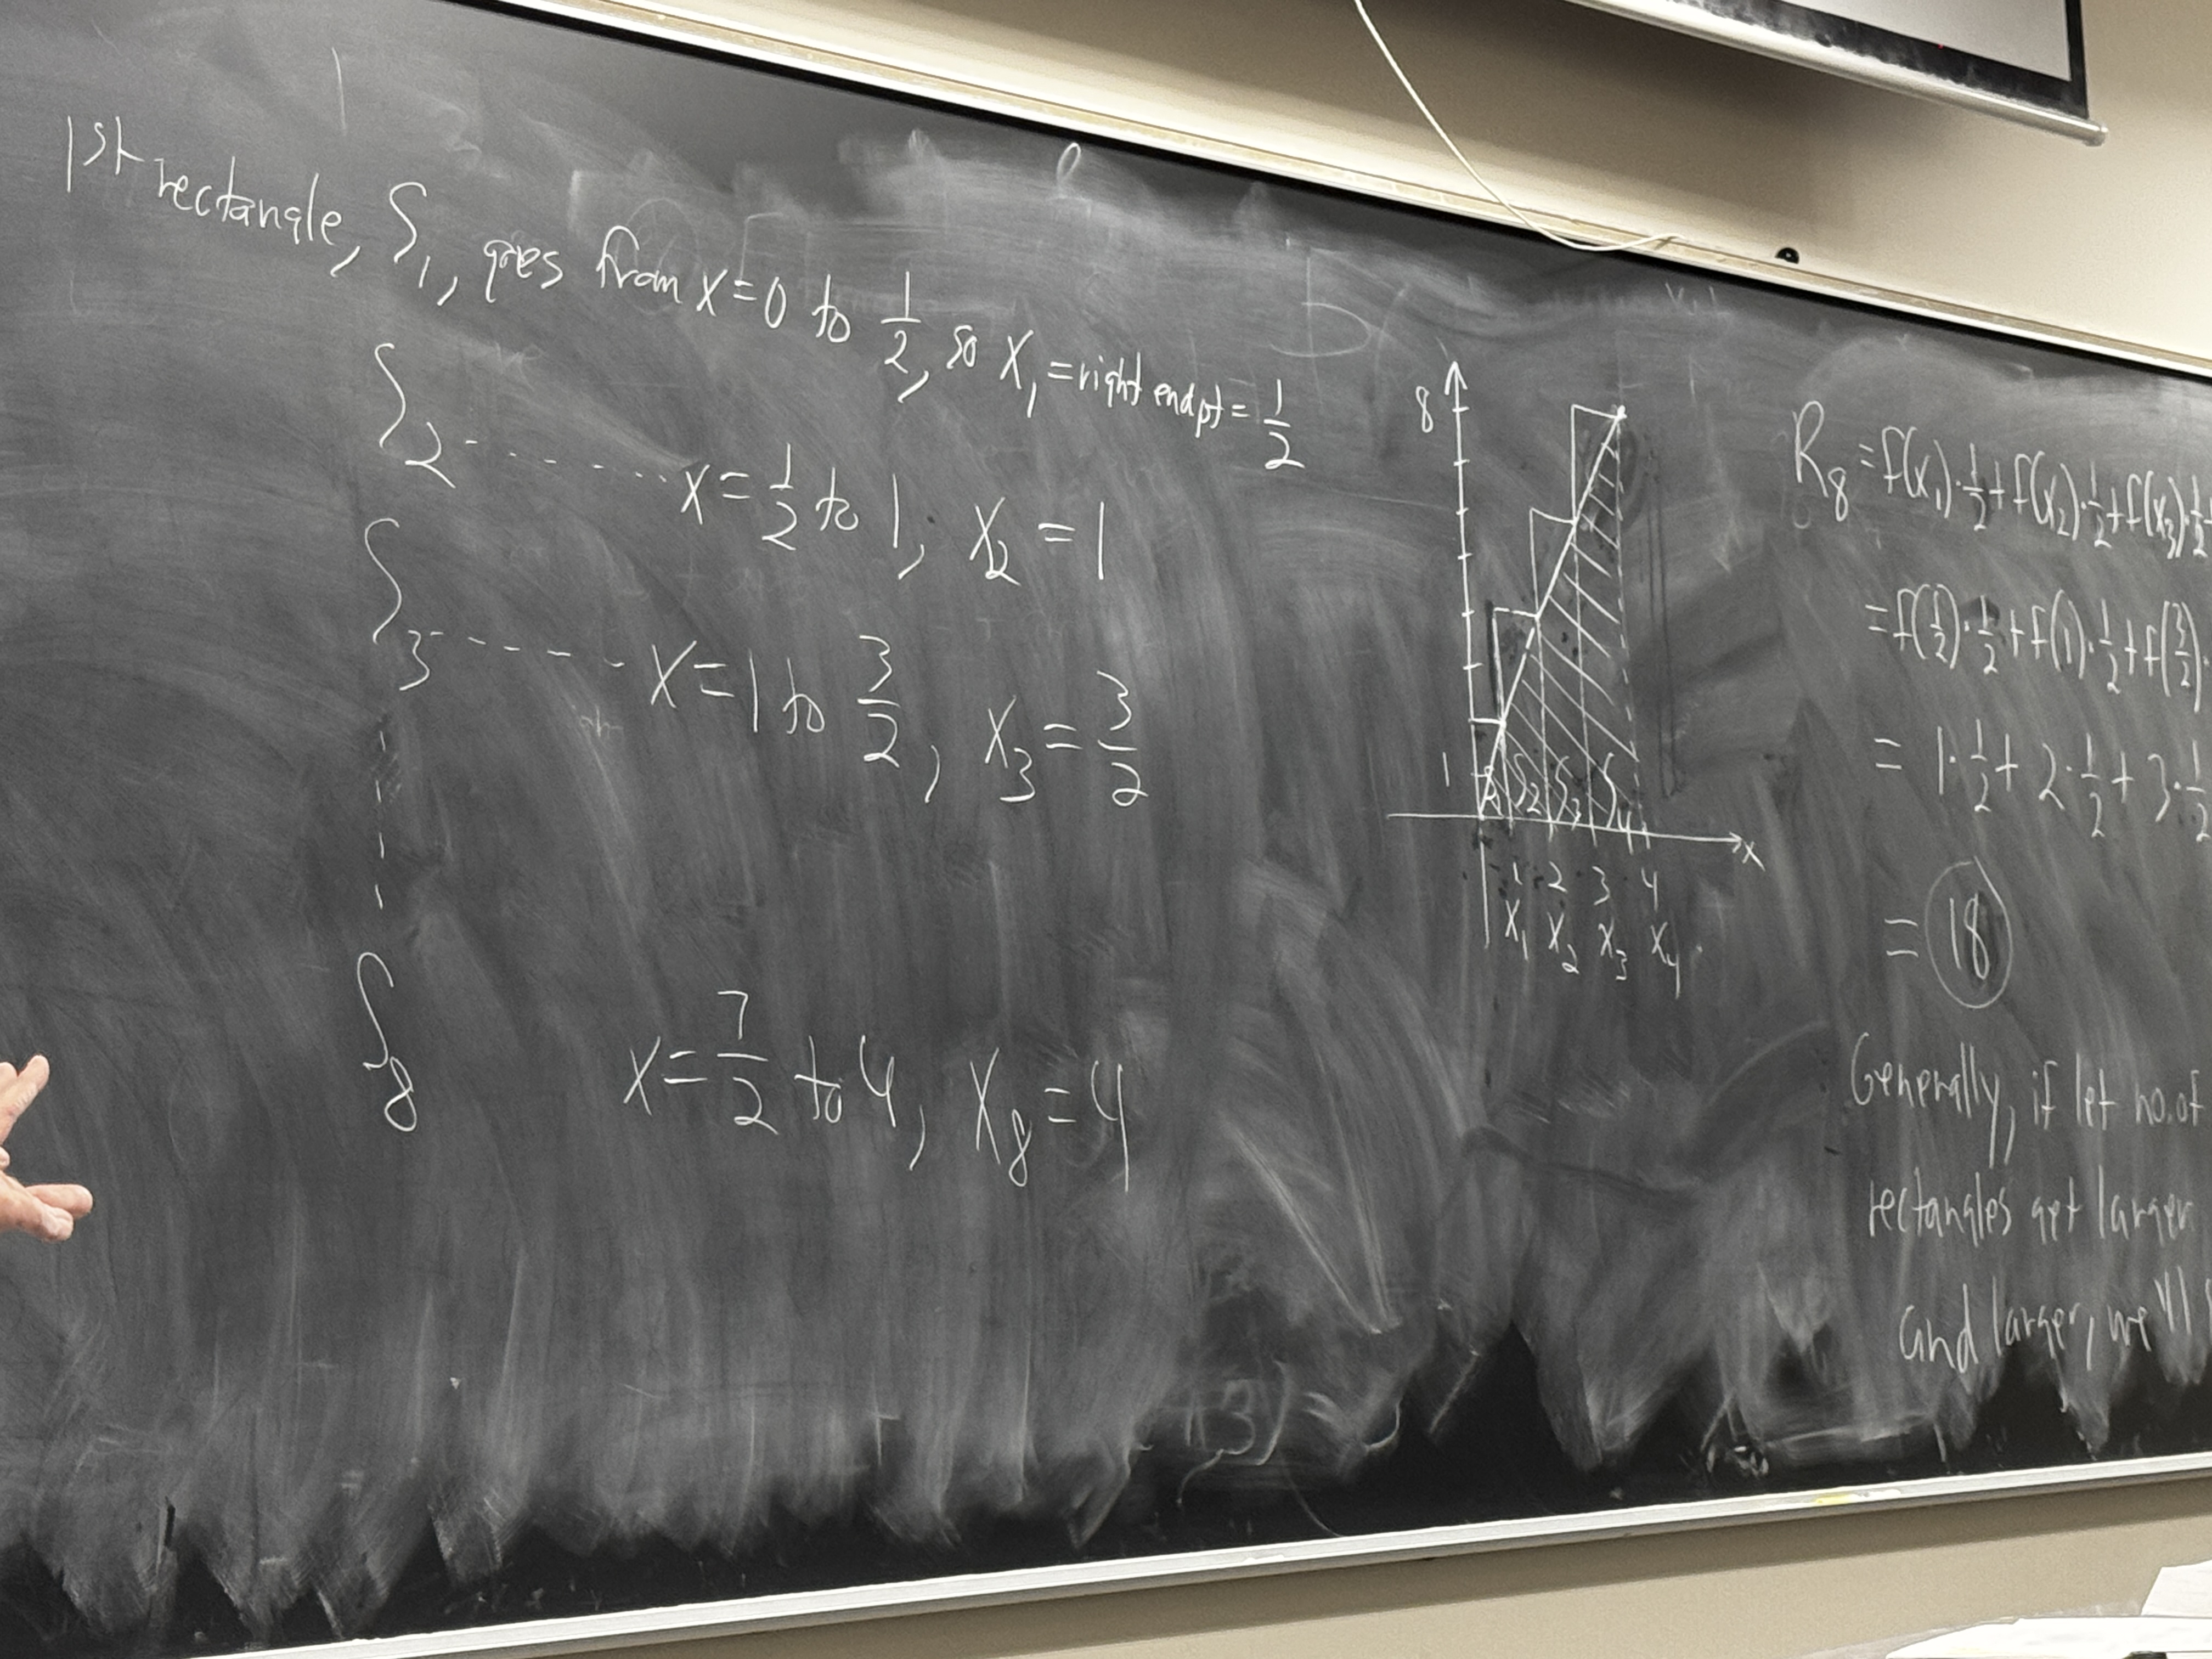 1st rectangle, S₁, goes from x=0 to 1/2, so x₁ = right endpt = 1/2
S₂ - ........ x = 1/2 to 1, x₂ = 1
S₃ - - - - - x = 1 to 3/2, x₃ = 3/2
S₈ x = 7/2 to 4, x₈ = 4
8
1
S₂ S₃ S₄
x
1 2 3 4
x₁ x₂ x₃ x₄
R₈ = f(x₁)·1/2 + f(x₂)·1/2 + f(x₃)·1/2
= f(1/2)·1/2 + f(1)·1/2 + f(3/2)·
= 1·1/2 + 2·1/2 + 3·1/2
= 18
Generally, if let no. of
rectangles get larger
and larger, we'll